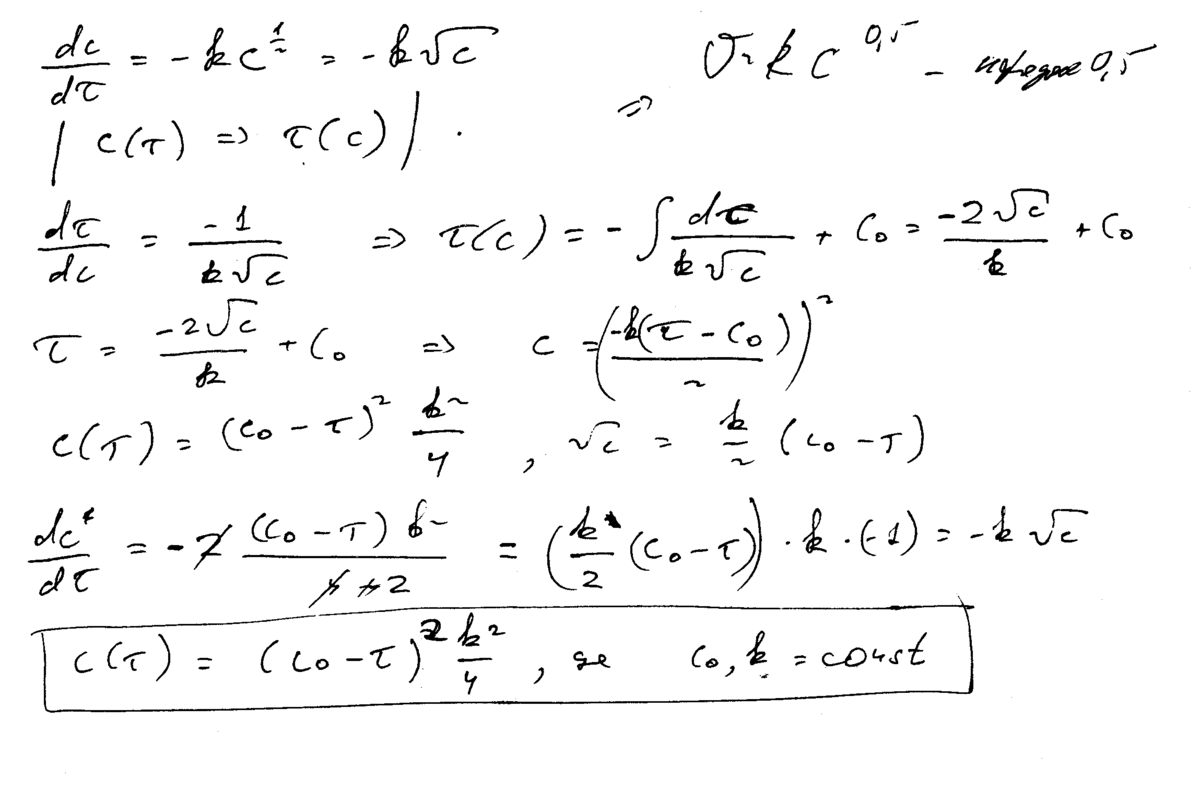 dc/dτ = - k c^{1/2} = - k√c => v = k c^{0,5} – порядок 0,5
| c(τ) => τ(c) | .
dτ/dc = -1/(k√c) => τ(c) = - ∫ dc/(k√c) + C₀ = -2√c/k + C₀
τ = -2√c/k + C₀ => c = (-k(τ - C₀)/2)²
c(τ) = (C₀ - τ)² k²/4 , √c = k/2 (C₀ - τ)
dc/dτ = - 2 (C₀ - τ) k²/(4 2) = (k/2 (C₀ - τ)) · k · (-1) = - k √c
c(τ) = (C₀ - τ)² k²/4 , де C₀, k = const